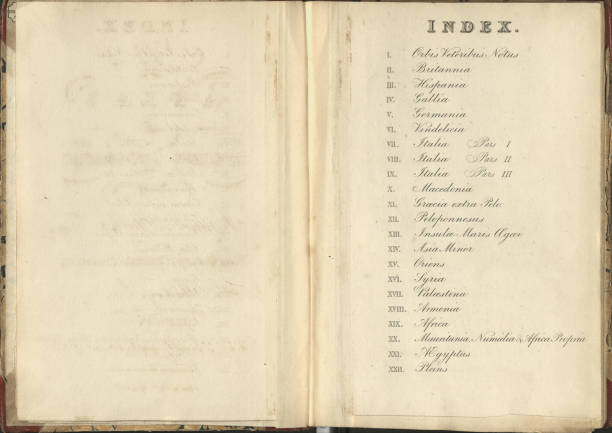 INDEX.
I. Orbis Veteribus Notus
II. Britannia
III. Hispania
IV. Gallia
V. Germania
VI. Vindelicia
VII. Italia Pars I
VIII. Italia Pars II
IX. Italia Pars III
X. Macedonia
XI. Græcia extra Pelo.
XII. Peloponnesus
XIII. Insulæ Maris Ægæi
XIV. Asia Minor
XV. Oriens
XVI. Syria
XVII. Palæstina
XVIII. Armenia
XIX. Africa
XX. Mauritania, Numidia & Africa Propria
XXI. Ægyptus
XXII. Plans